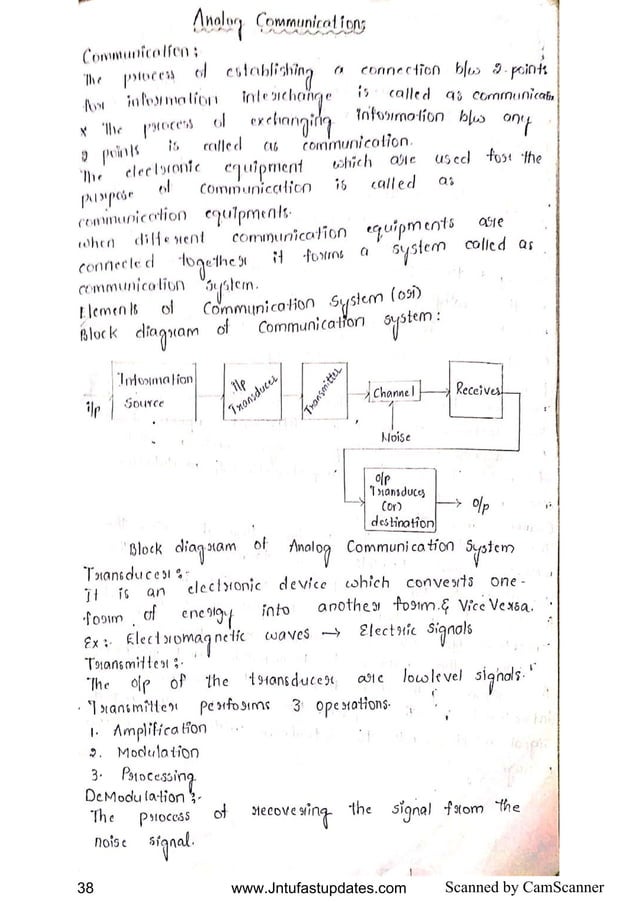 Analog Communications
Communication:
The process of establishing a connection b/w 2 points
for information interchange is called as communicatin
* The process of exchanging information b/w any
2 points is called as communication.
The electronic equipment which are used for the
purpose of communication is called as
communication equipments.
when different communication equipments are
connected together it forms a system called as
communication system.
Elements of Communication System (OSI)
Block diagram of Communication system:
i/p
Information
Source
i/p
Transducer
Transmitter
Channel
Receiver
Noise
o/p
Transducer
(or)
destination
o/p
Block diagram of Analog Communication System
Transducer:-
It is an electronic device which converts one-
form of energy into another form & Vice Versa.
Ex:- Electromagnetic waves → Electric Signals
Transmitter:-
The o/p of the transducer are lowlevel signals.
Transmitter performs 3 operations.
1. Amplification
2. Modulation
3. Processing
DeModulation:-
The process of recovering the signal from the
noise signal.
38 www.Jntufastupdates.com Scanned by CamScanner